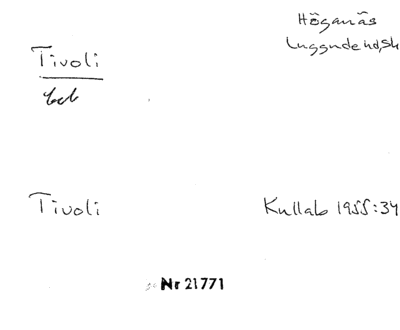 Höganäs
Luggude hd, Sk
Tivoli
Tivoli
Kullab 1955:34
Nr 21771